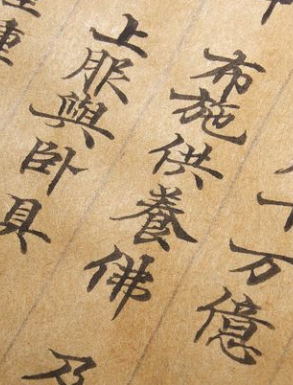 十万億
布施供養佛 及
上服與卧具